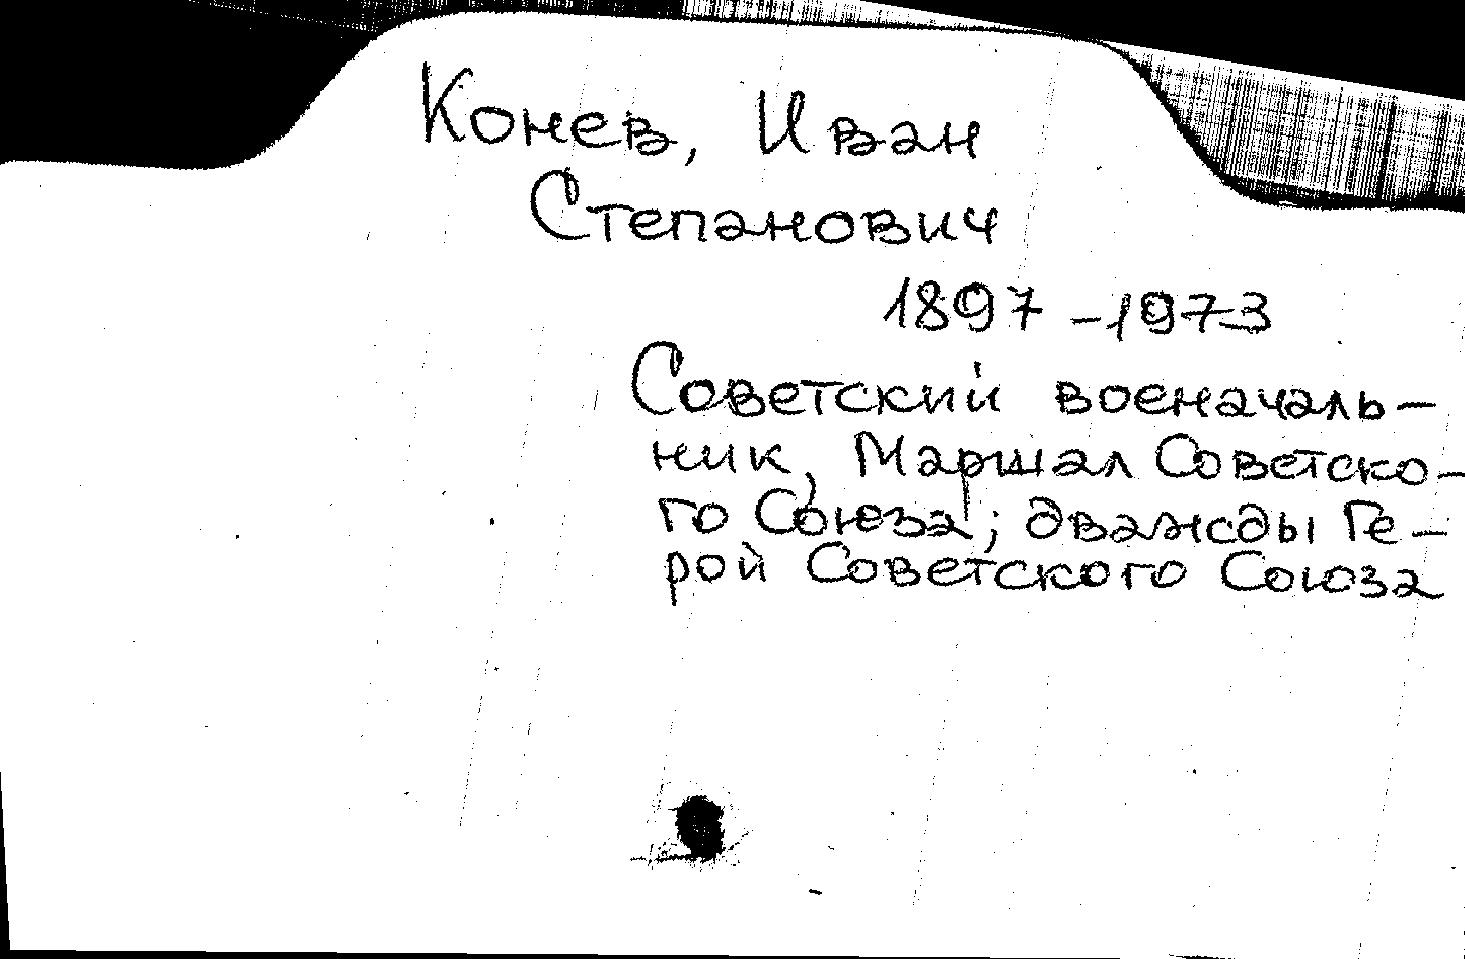 Конев, Иван
Степанович
1897-1973
Советский военачаль-
ник, Маршал Советско-
го Союза; дважды Ге-
рой Советского Союза